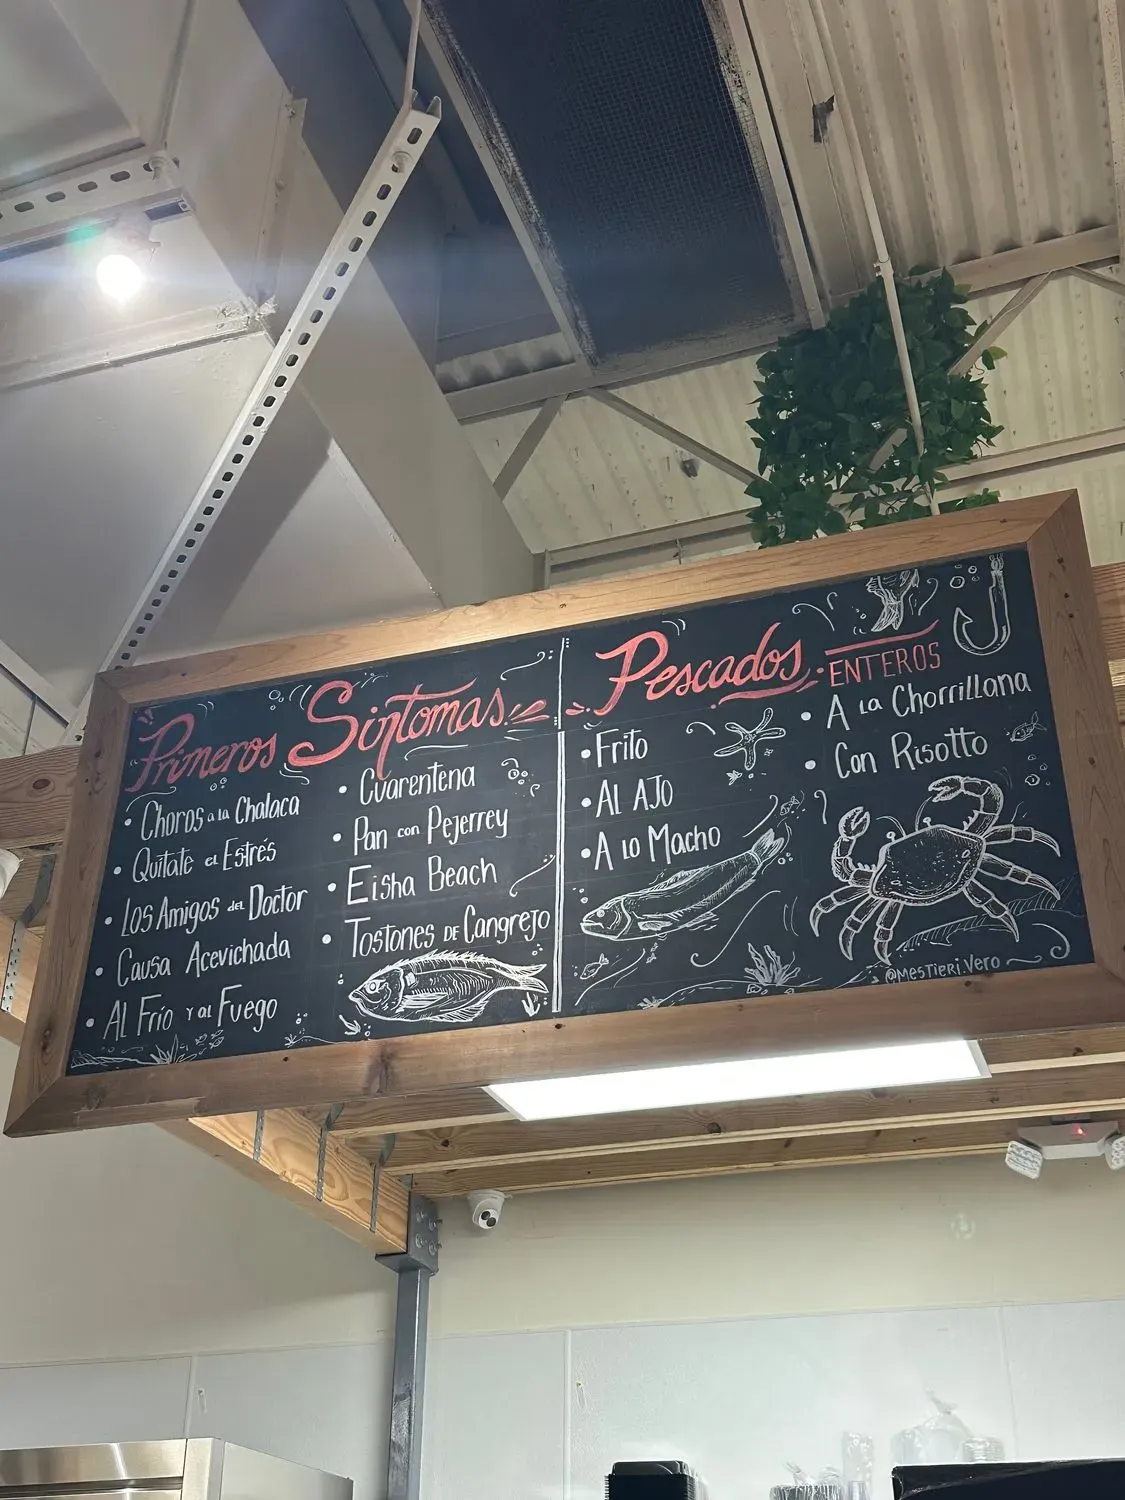 Primeros Síntomas
• Choros a la Chalaca
• Quítate el Estrés
• Los Amigos del Doctor
• Causa Acevichada
• Al Frío y al Fuego
• Cuarentena
• Pan con Pejerrey
• Eisha Beach
• Tostones de Cangrejo
Pescados ENTEROS
• Frito
• Al Ajo
• A lo Macho
• A la Chorrillana
• Con Risotto
@MESTIERI.VERO